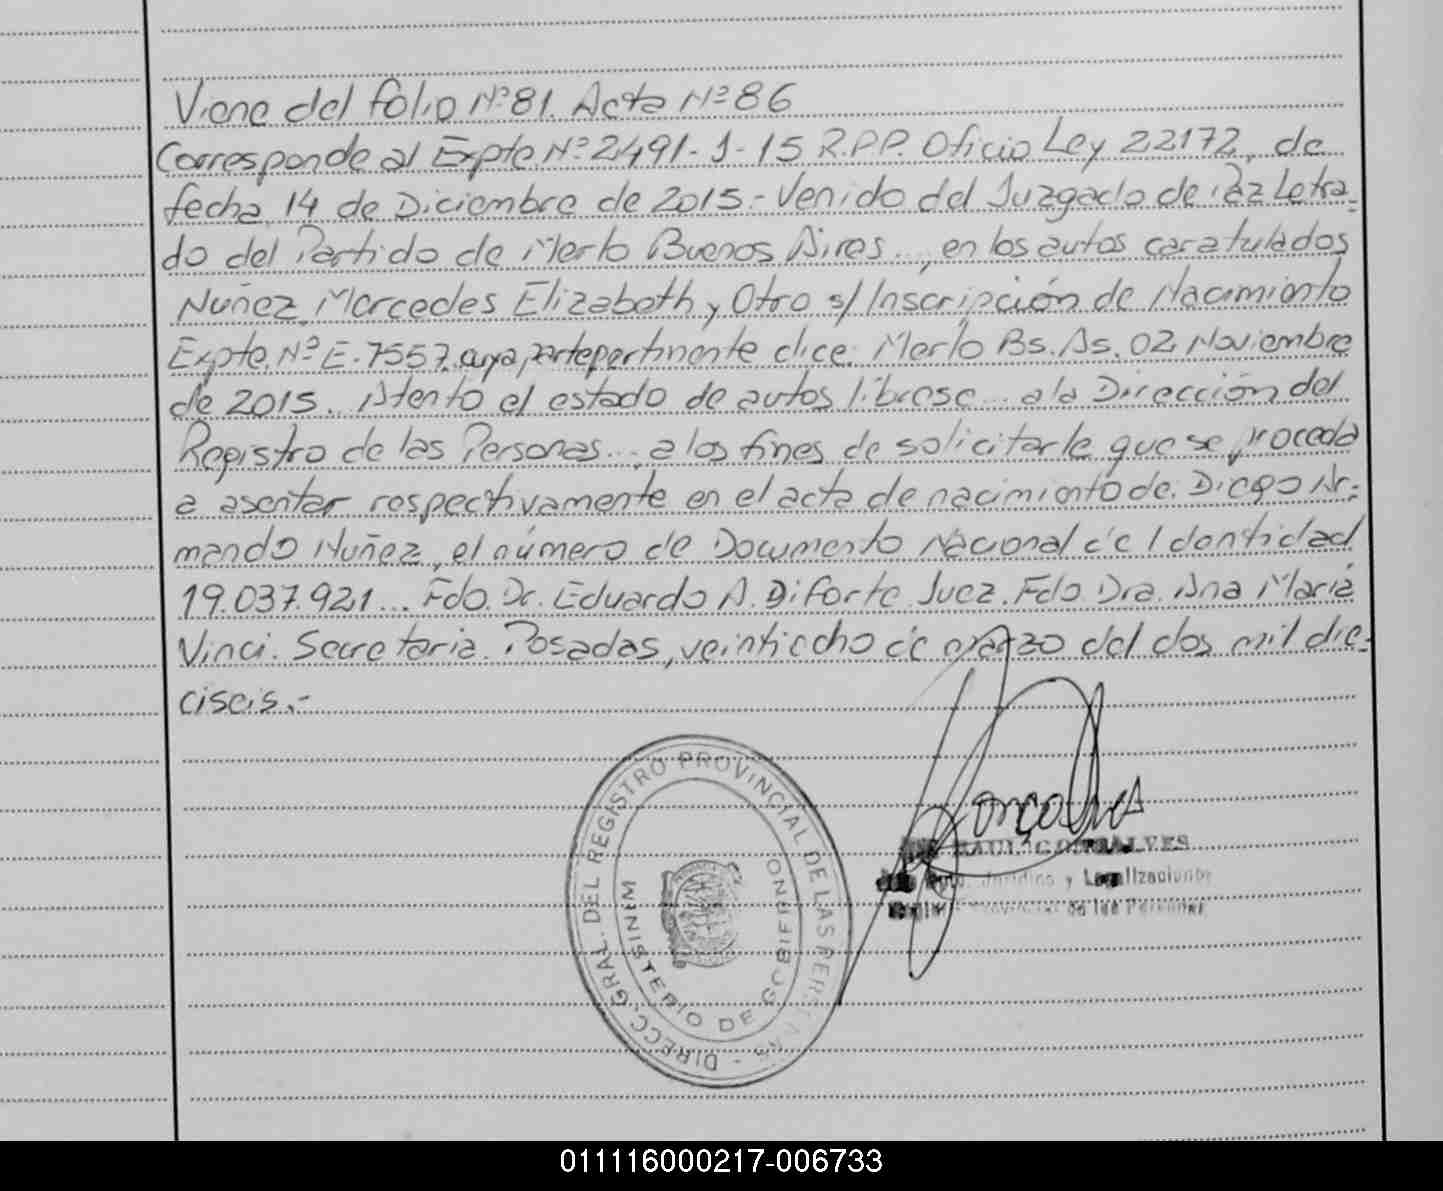 Viene del folio Nº 81. Acta Nº 86
Corresponde al Expte Nº 2491-J-15 R.P.P. Oficio Ley 22172, de
fecha 14 de Diciembre de 2015.- Venido del Juzgado de Paz Letra-
do del Partido de Merlo Buenos Aires..., en los autos caratulados
Nuñez, Mercedes Elizabeth y Otro s/ Inscripción de Nacimiento
Expte. Nº E-7557. cuya parte pertinente dice: Merlo Bs. As. 02 Noviembre
de 2015. Atento el estado de autos librese... a la Dirección del
Registro de las Personas..., a los fines de solicitarle que se proceda
a asentar respectivamente en el acta de nacimiento de: Diego Ar-
mando Nuñez, el número de Documento Nacional de Identidad
19.037.921... Fdo. Dr. Eduardo A. Diforte Juez. Fdo Dra. Ana Maria
Vinci. Secretaria. Posadas, veintiocho de marzo del dos mil die-
ciseis.-
DIRECC. GRAL. DEL REGISTRO PROVINCIAL DE LAS PERSONAS -
MINISTERIO DE GOBIERNO
Gonçalves
RAUL GONSALVES
Dpto. Jurídico y Legalizaciones
Registro Provincial de las Personas
011116000217-006733